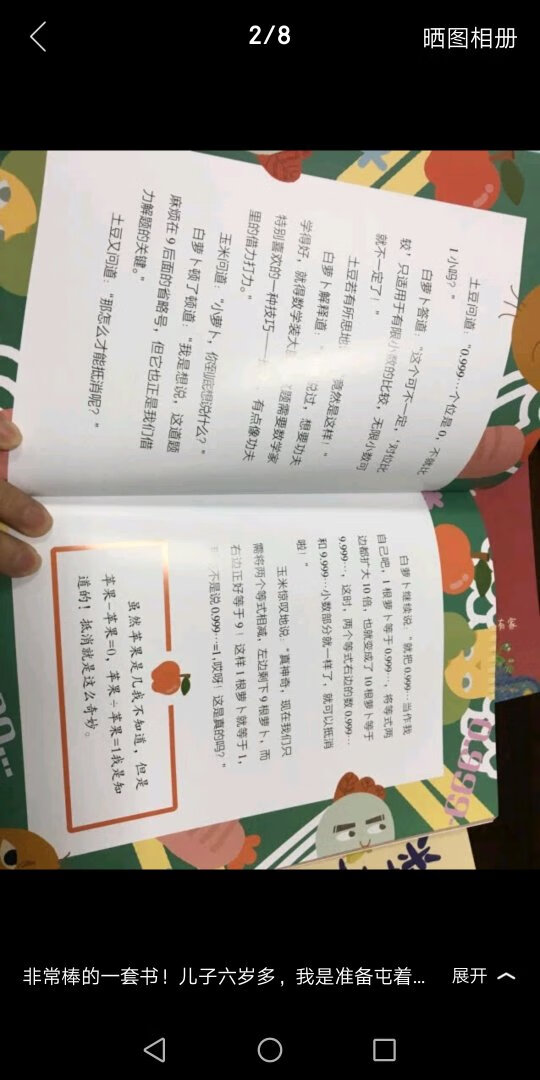 2/8
晒图相册
土豆问道："0.999…个位是0，不就比
1小吗？"
白萝卜答道："这个可不一定，'对位比
较'只适用于有限小数的比较，无限小数可
就不一定了！"
土豆若有所思地
竟然是这样！"
白萝卜解释道："
说过，想要功夫
学得好，就得数学装大
题需要数学家
特别喜欢的一种技巧——
有点像功夫
里的借力打力。"
玉米问道："小萝卜，你到底想说什么？"
白萝卜顿了顿道："我是想说，这道题
麻烦在9后面的省略号，但它也正是我们借
力解题的关键。"
土豆又问道："那怎么才能抵消呢？"
白萝卜继续说："就把0.999…当作我
自己吧，1根萝卜等于0.999…，将等式两
边都扩大10倍，也就变成了10根萝卜等于
9.999…，这时，两个等式右边的数0.999…
和9.999…小数部分就一样了，就可以抵消
啦！"
玉米惊叹地说："真神奇，现在我们只
需将两个等式相减，左边剩下9根萝卜，而
右边正好等于9！这样1根萝卜就等于1，
不是说0.999…=1，哎呀！这是真的吗？"
虽然苹果是几我不知道，但是
苹果-苹果=0，苹果÷苹果=1我是知
道的！抵消就是这么奇妙。
非常棒的一套书！儿子六岁多，我是准备屯着...
展开